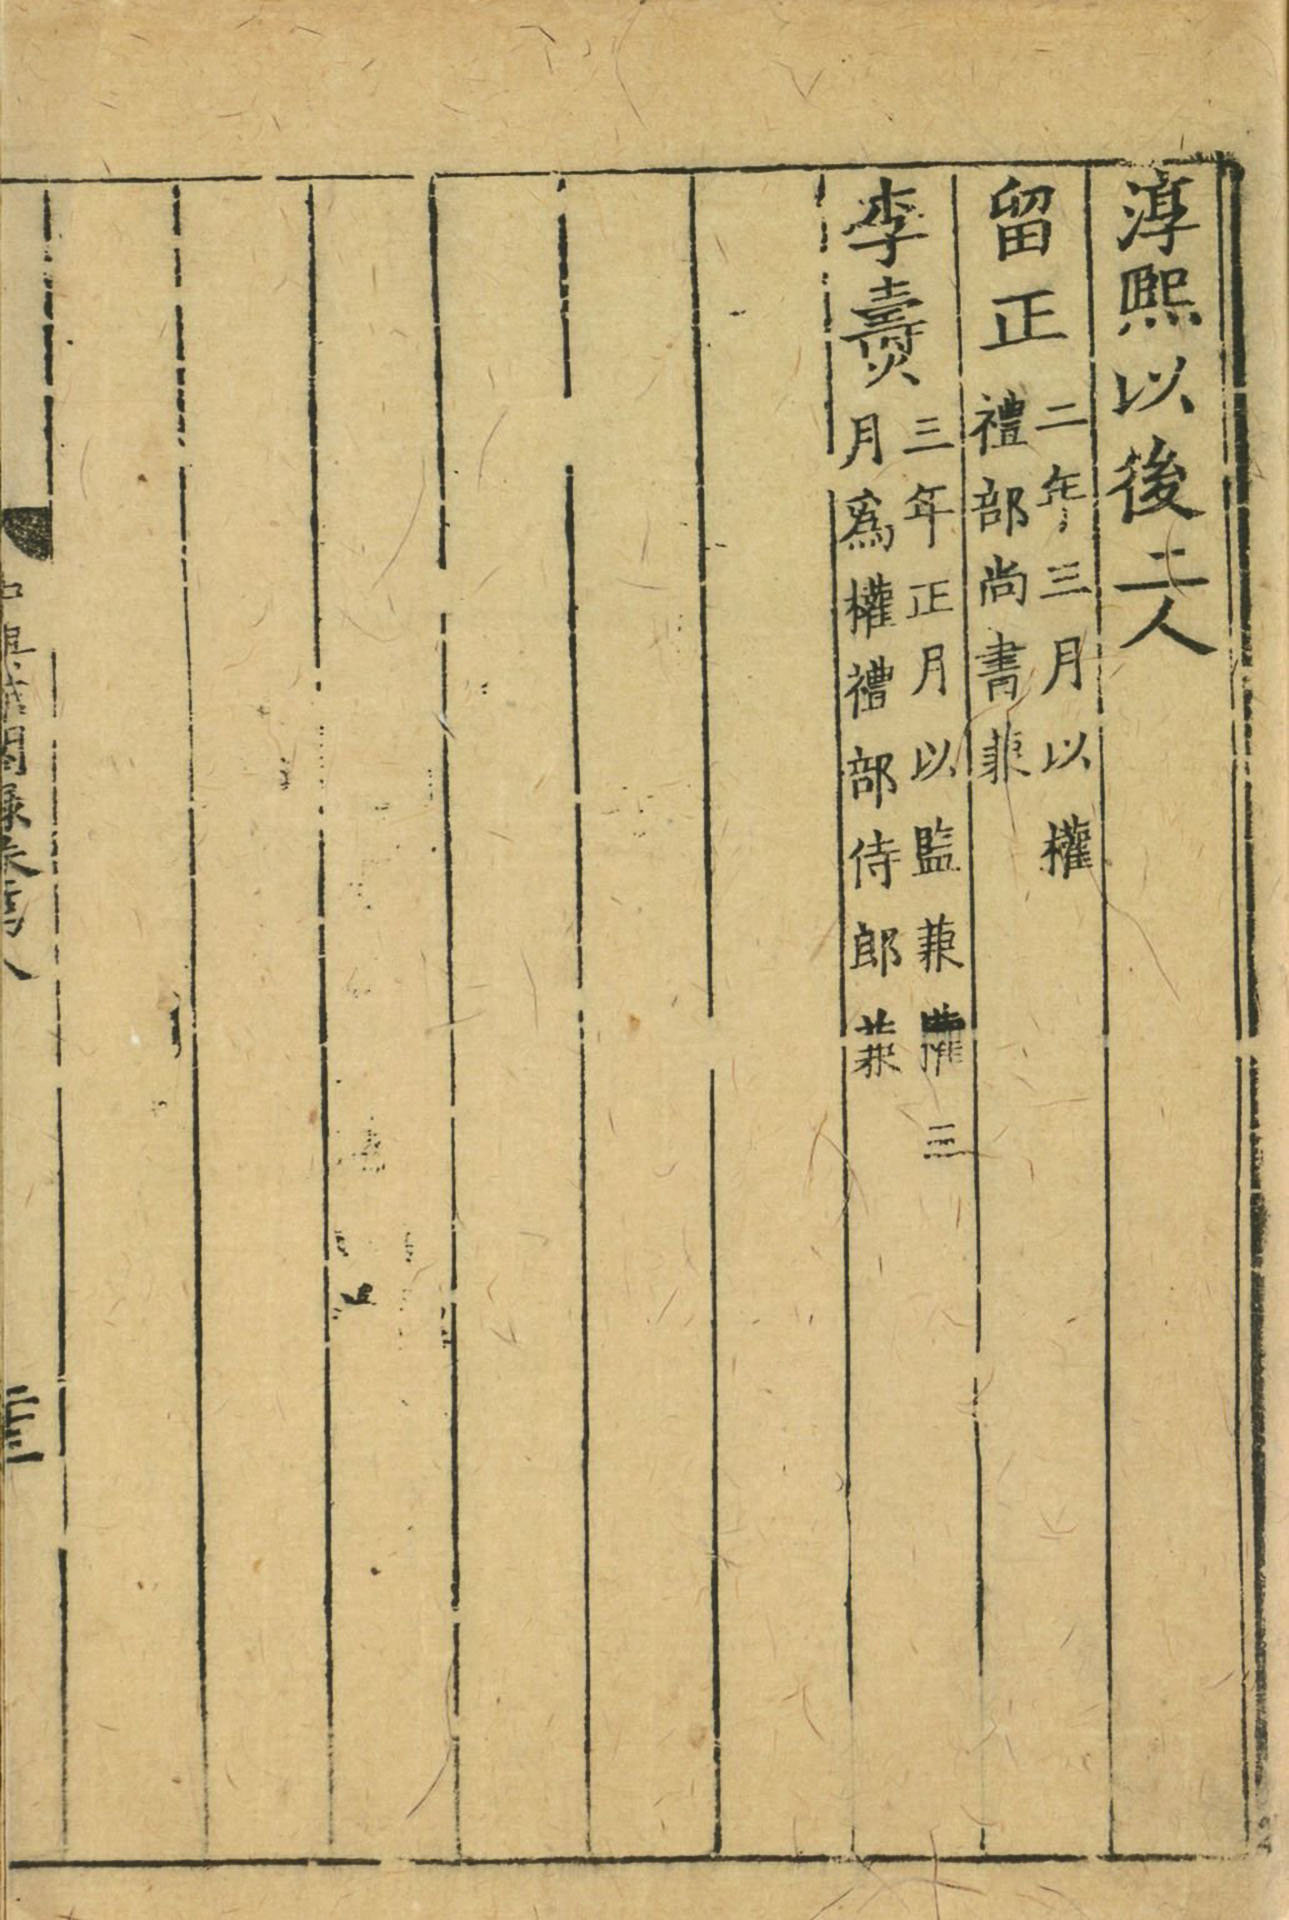 淳熙以後二人
留正二年三月以權
禮部尚書兼
李燾三年正月以監兼權三
月為權禮部侍郎兼
中興館閣錄卷第八
二十三